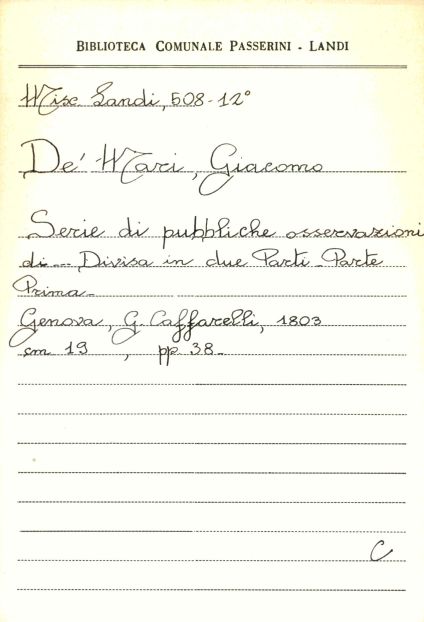 BIBLIOTECA COMUNALE PASSERINI - LANDI
Misc. Landi, 508-12°
De' Mari, Giacomo
Serie di pubbliche osservazioni
di... Divisa in due Parti - Parte
Prima -
Genova, G. Caffarelli, 1803
cm 19 , pp. 38 -
C